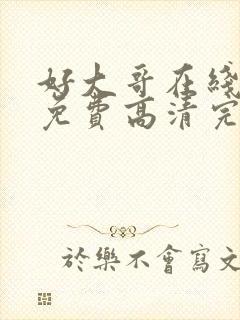 好大哥在綫
免費高清完
於樂不會寫文